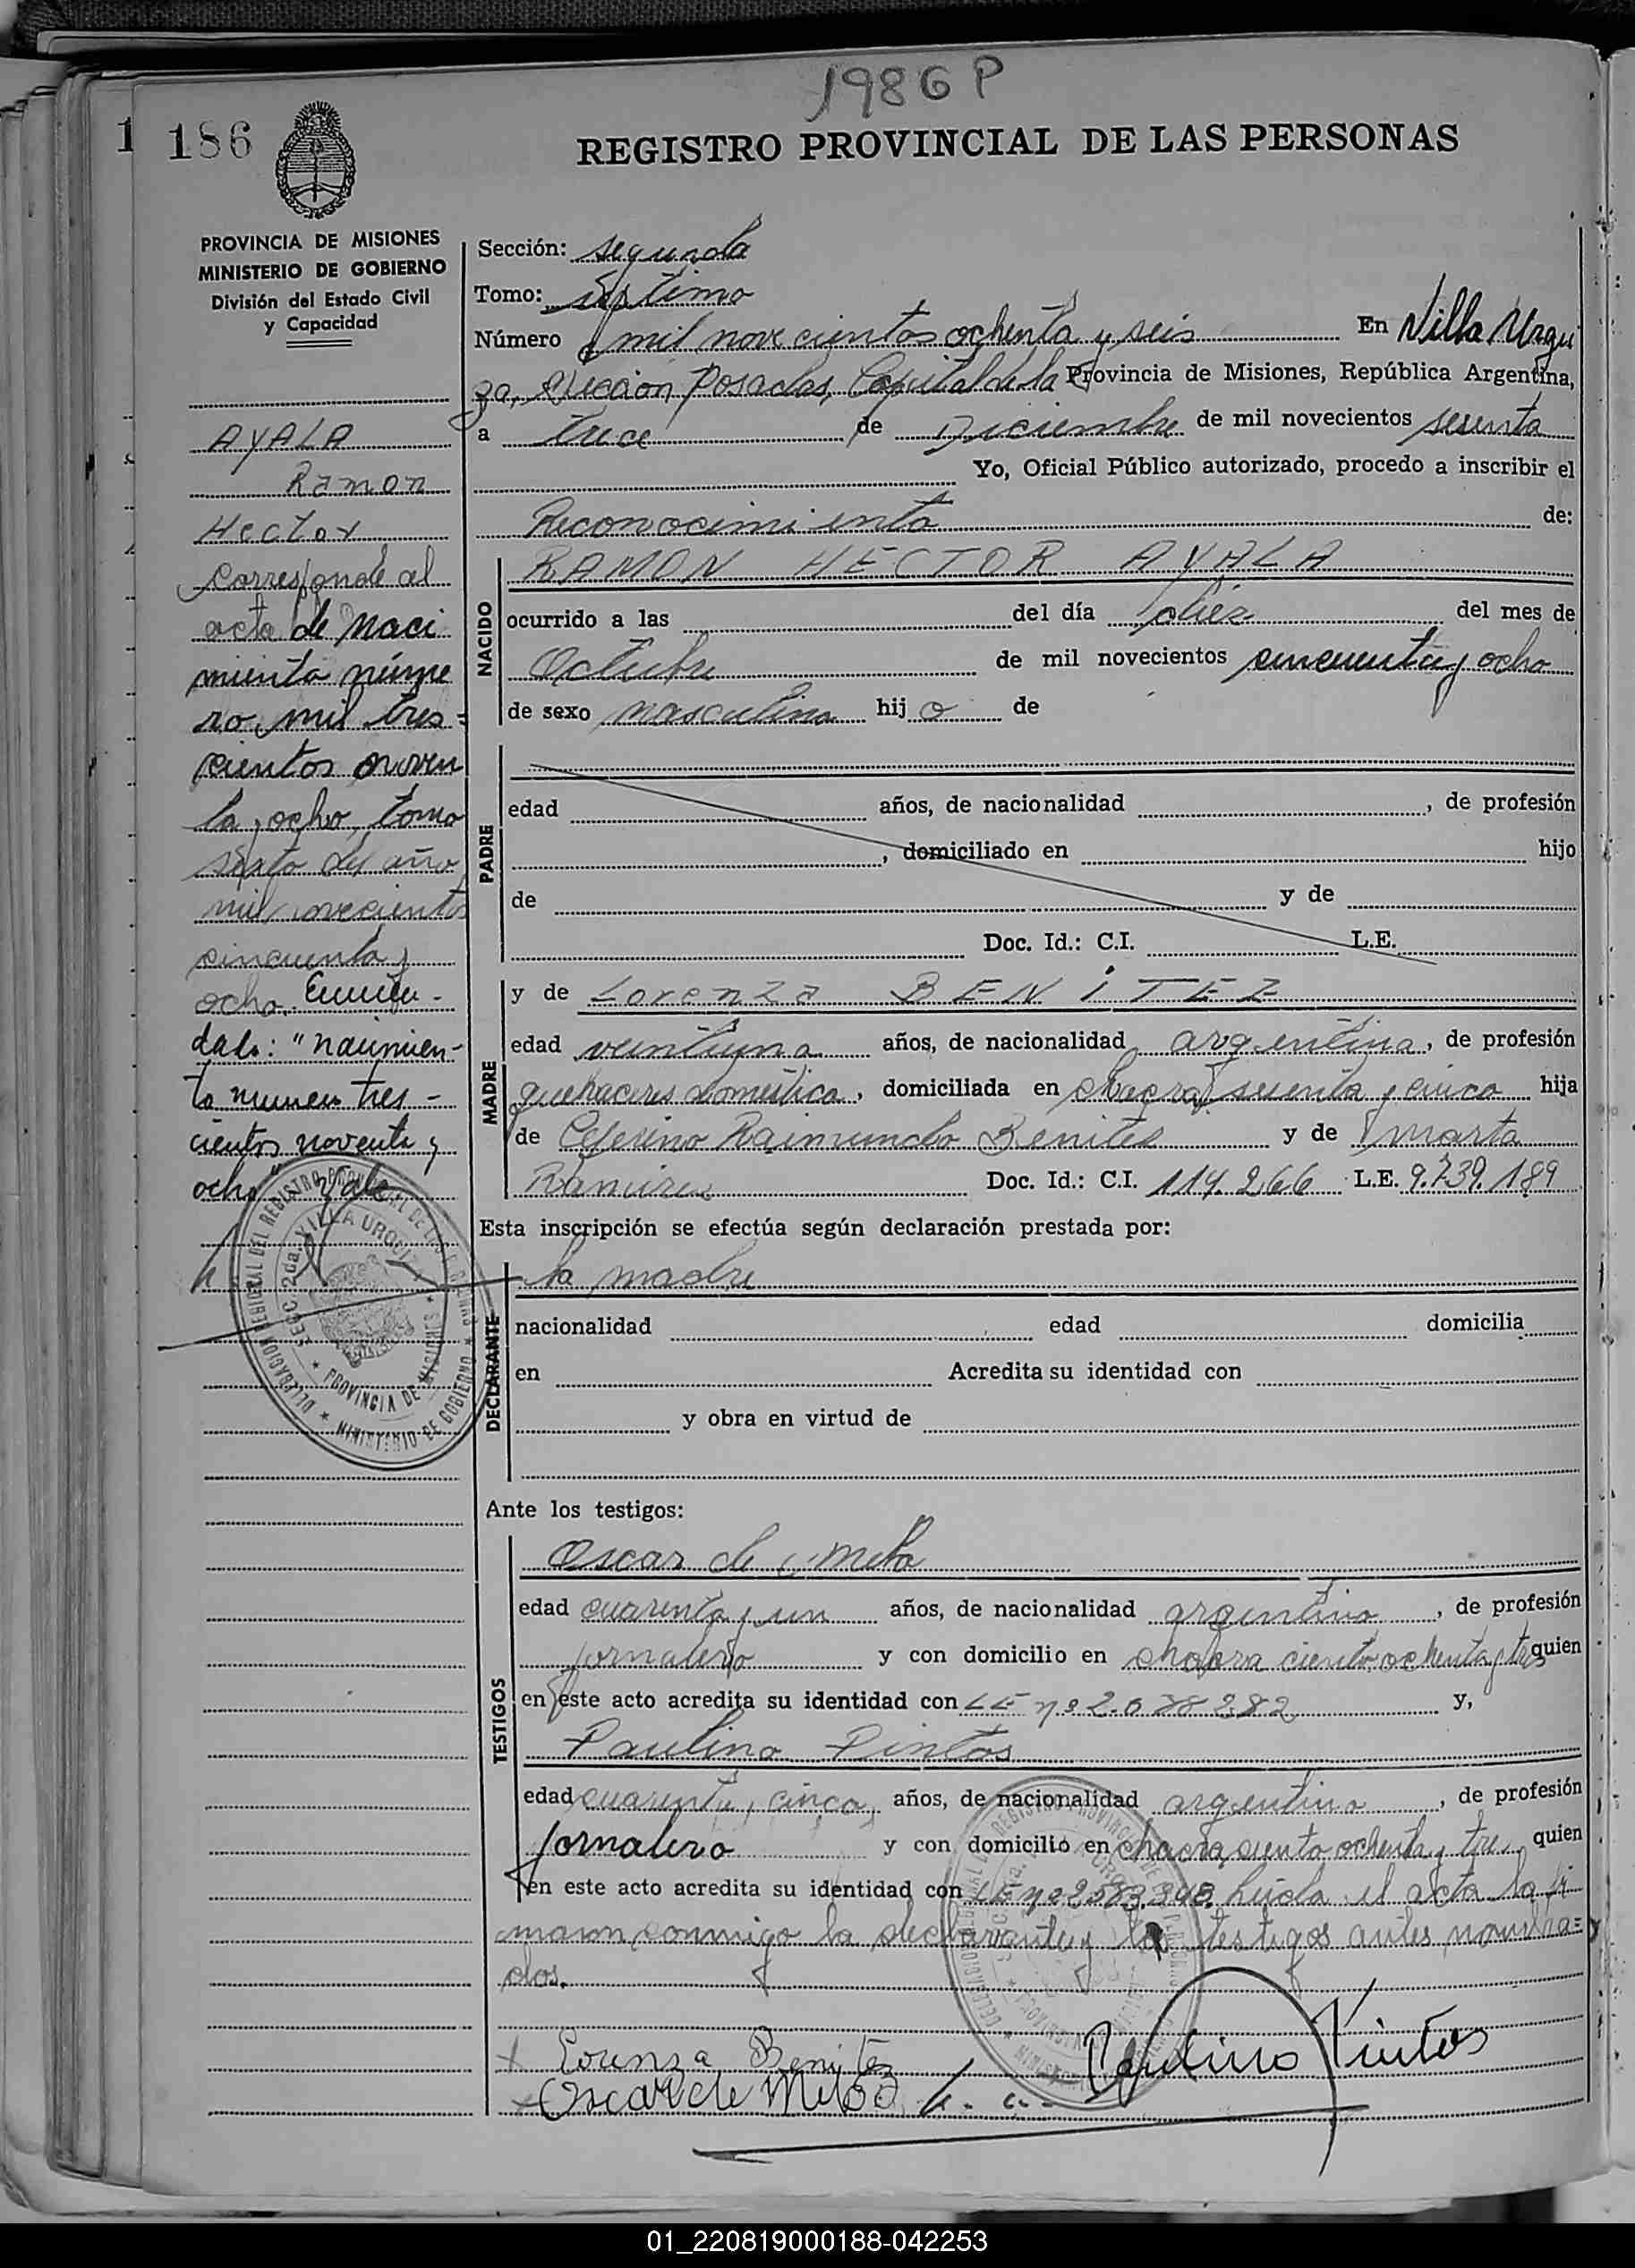 1986 P
186
REGISTRO PROVINCIAL DE LAS PERSONAS
PROVINCIA DE MISIONES
MINISTERIO DE GOBIERNO
División del Estado Civil
y Capacidad
AYALA
Ramon
Hector
Corresponde al
acta de naci
miento núme
ro mil tres=
cientos noven
ta y ocho, tomo
sexto del año
mil novecientos
cincuenta y
ocho. Enmen-
dado: "nacimien-
to numero tres-
cientos noventa y
ocho" Vale
Sección: segunda
Tomo: séptimo
Número mil novecientos ochenta y seis En Villa Urqui
za, Sección Posadas, Capital de la Provincia de Misiones, República Argentina,
a trece de Diciembre de mil novecientos sesenta
Yo, Oficial Público autorizado, procedo a inscribir el
Reconocimiento de:
NACIDO
RAMON HECTOR AYALA
ocurrido a las del día diez del mes de
Octubre de mil novecientos cincuenta y ocho
de sexo masculino hijo de
PADRE
edad años, de nacionalidad , de profesión
, domiciliado en hijo
de y de
Doc. Id.: C.I. L.E.
MADRE
y de Lorenza BENITEZ
edad veintiuna años, de nacionalidad argentina, de profesión
quehaceres domestica, domiciliada en chacra sesenta y cinco hija
de Ceferino Raimundo Benites y de Marta
Ramirez Doc. Id.: C.I. 114.266 L.E. 9.739.189
Esta inscripción se efectúa según declaración prestada por:
DECLARANTE
la madre
nacionalidad edad domicilia
en Acredita su identidad con
y obra en virtud de
Ante los testigos:
TESTIGOS
Oscar de Melo
edad cuarenta y un años, de nacionalidad argentino, de profesión
jornalero y con domicilio en chacra ciento ochenta y tres quien
en este acto acredita su identidad con LE nº 2.078282 y,
Paulino Pintos
edad cuarenta y cinco años, de nacionalidad argentino, de profesión
jornalero y con domicilio en chacra ciento ochenta y tres quien
en este acto acredita su identidad con LE nº 2583.348. Leida el acta la fir
maron conmigo la declarante y los testigos antes nombra=
dos.
Lorenza Benites
Paulino Pintos
Oscar de Melo
DELEGACION REGIONAL DEL REGISTRO PROVINCIAL DE LAS PERSONAS
SECC. 2da. VILLA URQUIZA
PROVINCIA DE MISIONES
MINISTERIO DE GOBIERNO
01_220819000188-042253